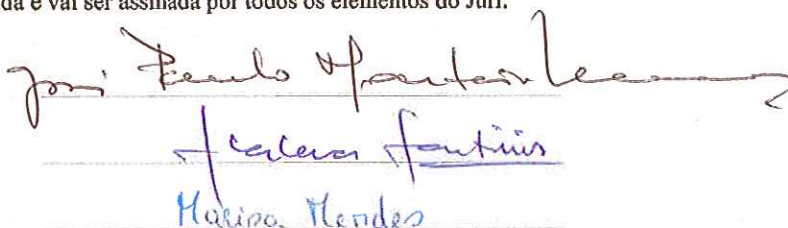 da e vai ser assinada por todos os elementos do Júri.
José Paulo Monteiro
Martins
Marisa Mendes